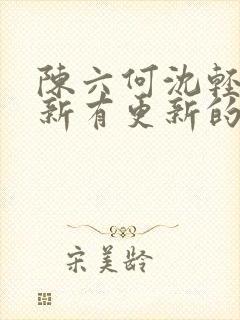 陳六何沈輕
新有更新的
宋美齡